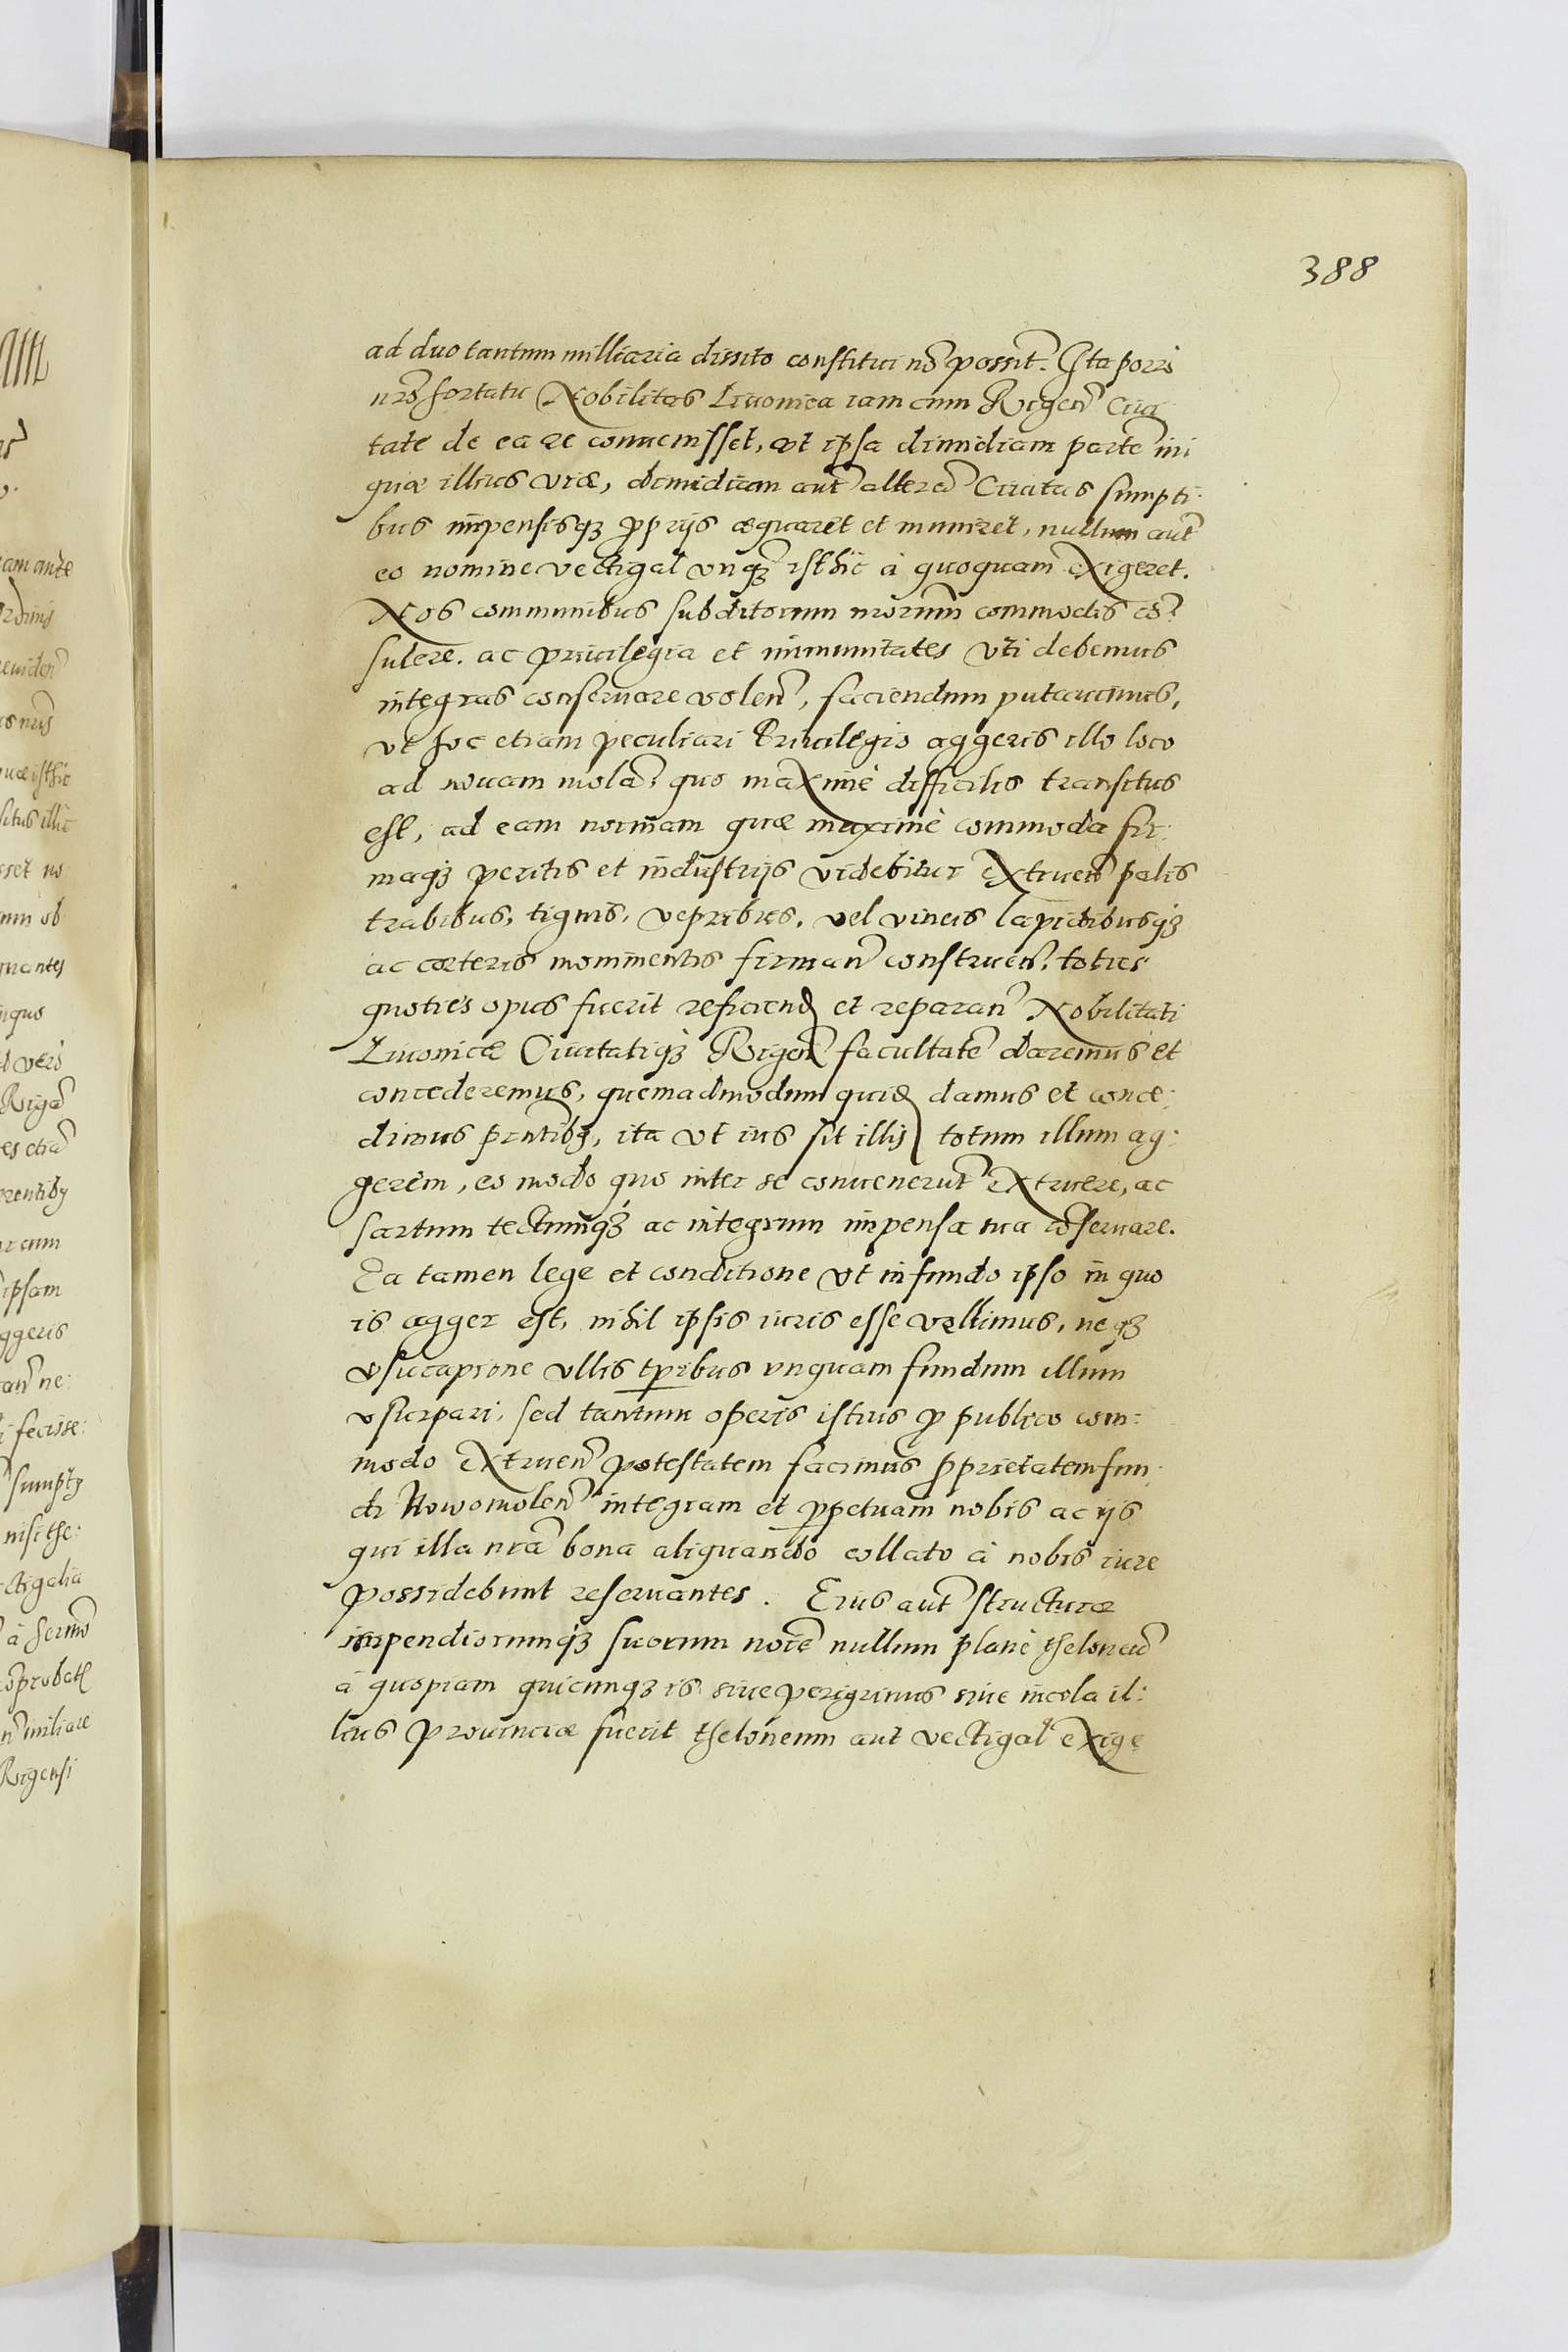 388
ad duo tantum milliaria dissito constitui nō possit. Ita porrò
nr̄o hortatu Nobilitas Livonica iam cum Rigeñ Civi
tate de ea re convenisset, ut ipsa dimidiam partē ini
quæ illius viæ, dimidiam aut̄ alterā Civitas sumpti:
bus impensisq; p̱prijs æquaret et muniret, nullum aut̄
eo nomine vectigal unq̄ isthic à quoquam exigeret.
Nos communibus subditorum nr̄orum commodis cō:
sulere, ac privilegia et immunitates uti debemus
integras conservare voleñ, faciendum putavimus,
ut hoc etiam peculiari Privilegio aggeris illo loco
ad novam molā, quo maximè difficilis transitus
est, ad eam normam quæ maximè commoda fir:
maq; peritis et industrijs videbitur extrueñ palis
trabibus, tignis, vepribus, vel vincis lapidibusq;
ac cæteris momimentis firmañ construeñ, toties
quoties opus fuerit reficiend et reparañ Nobilitati
Livonicæ Civitatiq; Rigeñ facultatē daremus et
concederemus, quemadmodum quid damus et conce:
dimus pr̄ntib;, ita ut ius sit illis totum illum ag:
gerem, eo modo quo inter se convenerūt extruere, ac
sartum tectumq; ac integrum impensa sua cōservare.
Ea tamen lege et conditione ut in fundo ipso in quo
is agger est, nihil ipsis iuris esse velimus, neq;
usucapione ullis tp̄ribus unquam fundum illum
usurpari, sed tantum operis istius p̱ publico com:
modo extrueñ potestatem facimus p̱prietatem fun:
di Nowomoleñ integram et p̱petuam nobis ac ijs
qui illa nr̄a bona aliquando collato à nobis iure
possidebunt reservantes. Eius aut̄ structuræ
impendiorumq; suorum noīe nullum planè theloneū
à quopiam quicunq; is sive peregrinus sive incola il:
lius Provinciæ fuerit theloneum aut vectigal exige